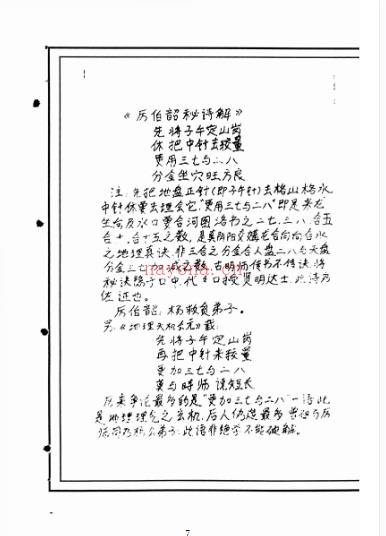 《厉伯韶秘诗解》
先将子午定山岗
休把中针去较量
更用三七与二八
分金坐穴旺方良
注：先把地盘正针(即子午针)去格山格水
中针休要去理会它"更用三七与二八"即是来龙
坐向及水口要合河图洛书之二七、三八、合五
合十、合十五之数，是真阴阳交媾龙合向向合水
之地理真诀，非三合之分金合人盘二八与天盘
分金三七加减之数，古明师传书不传诀将
秘诀隐于口中代々口授贤明达士，此诗乃
佐证也。
厉伯韶：杨救贫弟子。
另：《地理天机会元》载：
先将子午定山岗
再把中针来较量
更加三七与二八
莫与时师说短长
历来争论最多的是"更加三七与二八"一语，此
是地理理气之玄机，后人伪造最多
此语非绝学不能破解。
7